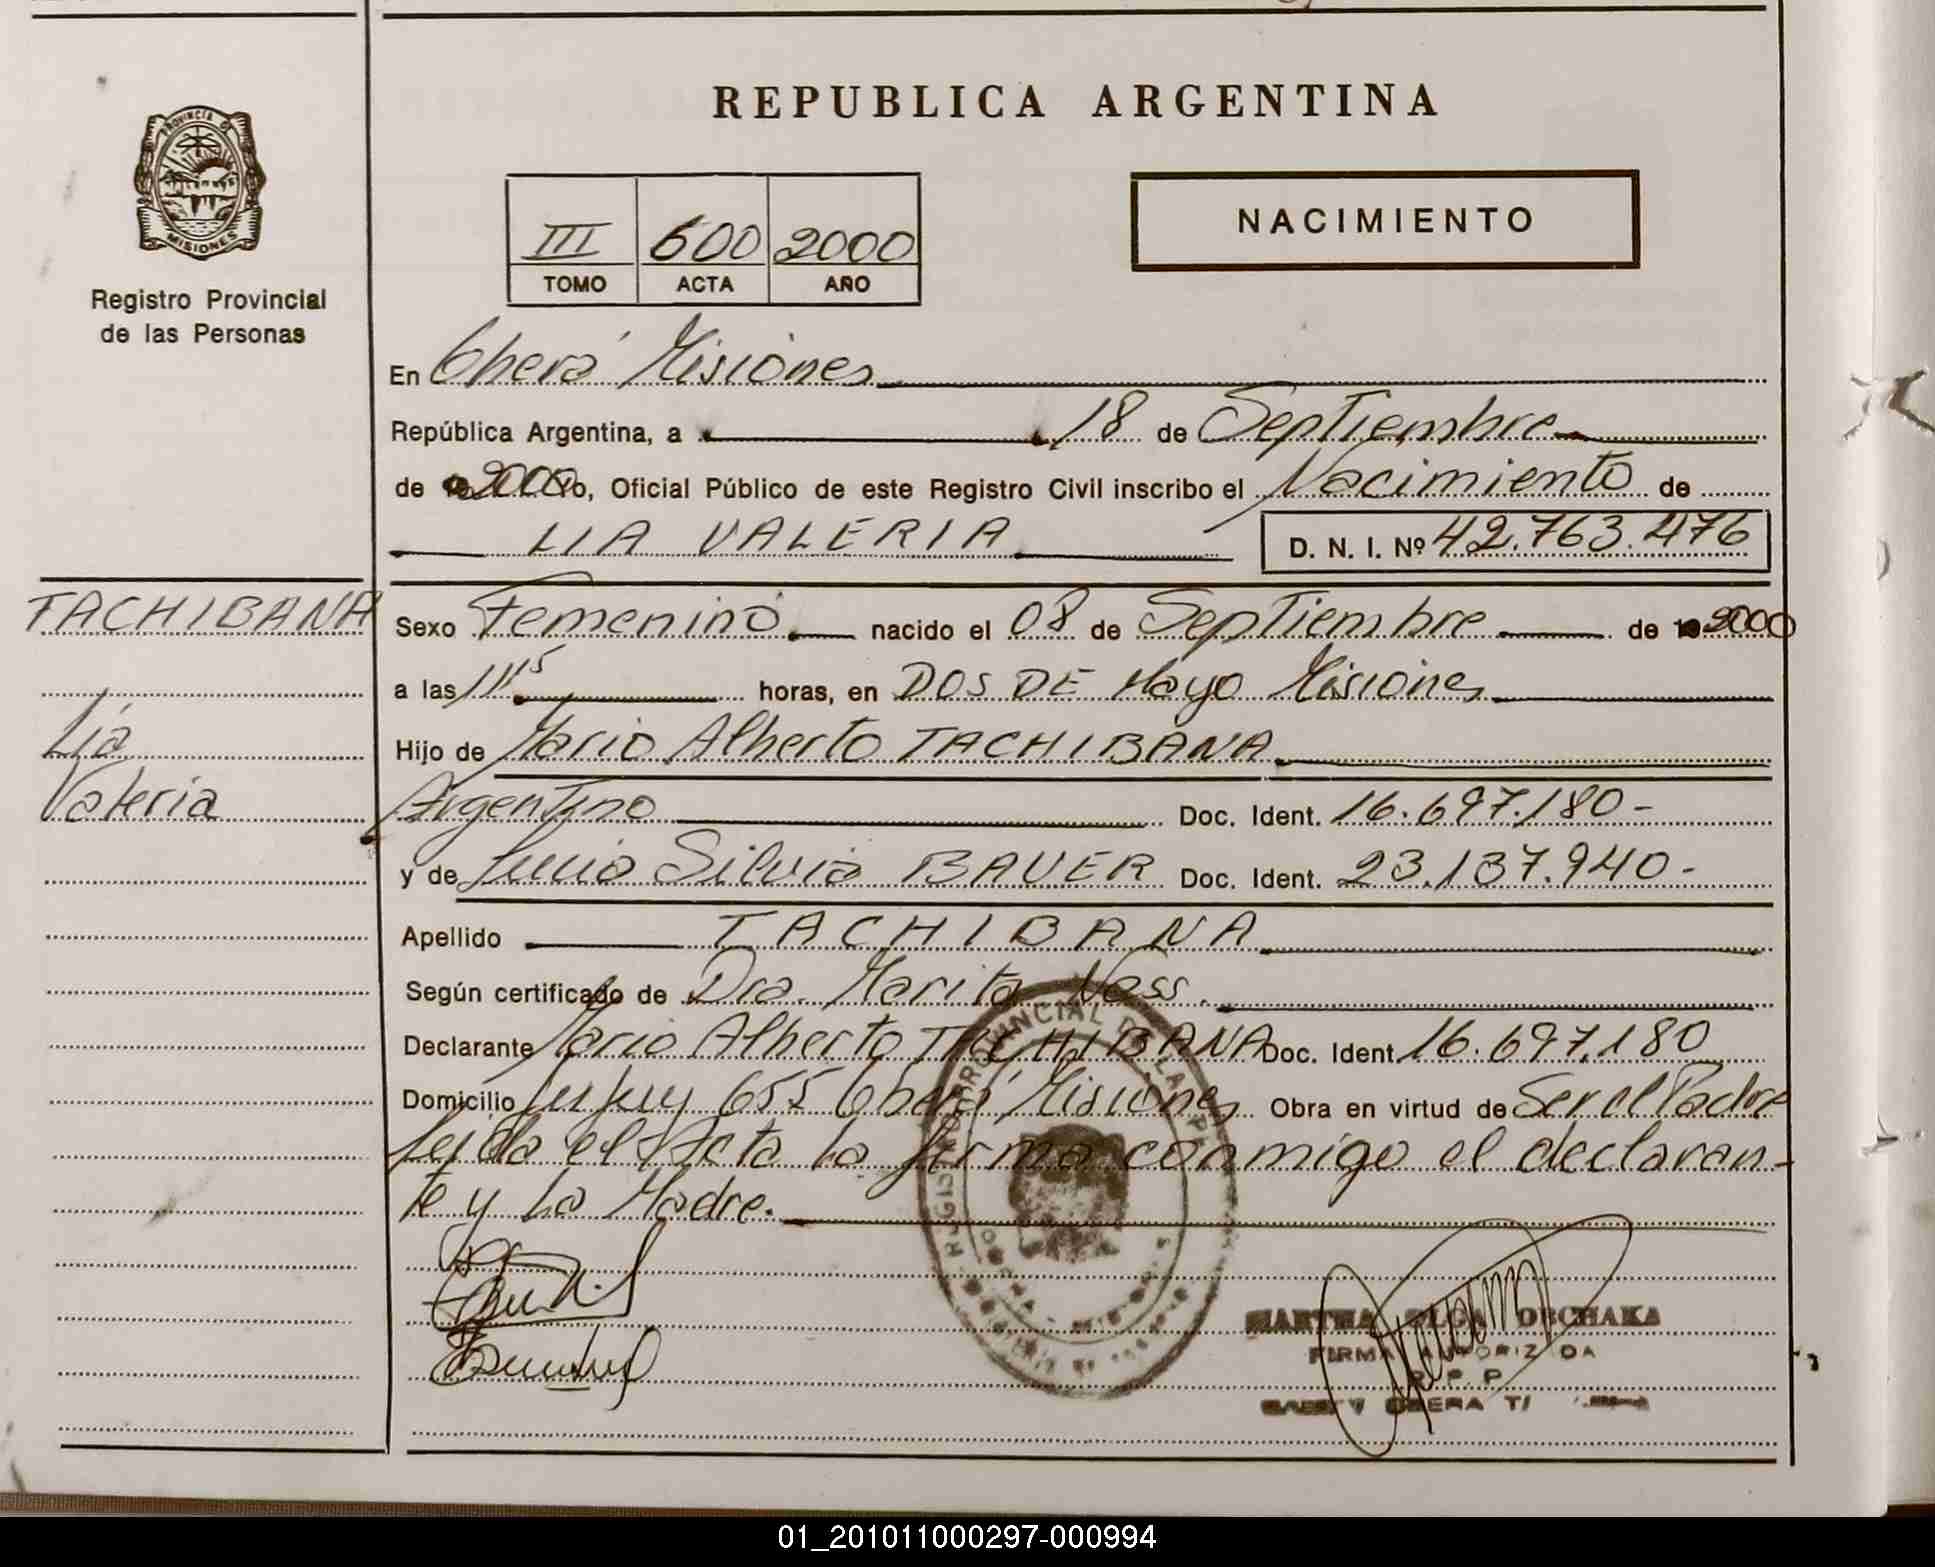 REPUBLICA ARGENTINA
PROVINCIA DE
MISIONES
Registro Provincial
de las Personas
III 600 2000
TOMO ACTA AÑO
NACIMIENTO
En Oberá Misiones
República Argentina, a 18 de Septiembre
de 2000 yo, Oficial Público de este Registro Civil inscribo el Nacimiento de
LIA VALERIA D. N. I. Nº 42.763.476
TACHIBANA
Lía
Valeria
Sexo Femenino nacido el 08 de Septiembre de 2000
a las 11 15 horas, en DOS DE Mayo Misiones
Hijo de Mario Alberto TACHIBANA
Argentino Doc. Ident. 16.697.180-
y de Lucia Silvia BAUER Doc. Ident. 23.137.940-
Apellido TACHIBANA
Según certificado de Dra. Marita Nass.
Declarante Mario Alberto TACHIBANA Doc. Ident. 16.697.180
Domicilio Jujuy 655 Oberá Misiones Obra en virtud de Ser el Padre
Leída el Acta la firma conmigo el declaran-
te y La Madre.
REGISTRO PROVINCIAL DE LAS
MARTHA OLGA OBCHAKA
FIRMA AUTORIZADA
R. P. P.
OBERA
01_201011000297-000994